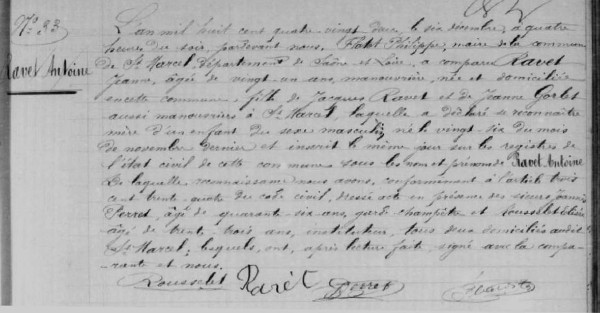 N° 33
Ravet Antoine
L'an mil huit cent quatre-vingt le six décembre, à quatre
heures du soir, pardevant nous, Philippe, maire de la commune
de St Marcel, Département de Saône et Loire, a comparu Ravet
Jeanne, âgée de vingt-un ans, manouvrière, née et domiciliée
en cette commune, fille de Jacques Ravet et de Jeanne Gorlet
aussi manouvriers à St Marcel, laquelle a déclaré se reconnaître
mère d'un enfant du sexe masculin né le vingt six du mois
de novembre dernier et inscrit le même jour sur les registres de
l'état civil de cette commune sous les nom et prénom de Ravet Antoine
De laquelle reconnaissance nous avons, conformément à l'article trois
cent trente-quatre du code civil, dressé acte en présence des sieurs
Perret, âgé de quarante-six ans, garde champêtre et Rousselet
âgé de trente-trois ans, instituteur, tous deux domiciliés audit
St Marcel; lesquels ont, après lecture faite, signé avec la compa-
rante et nous.
Rousselet Ravet Perret